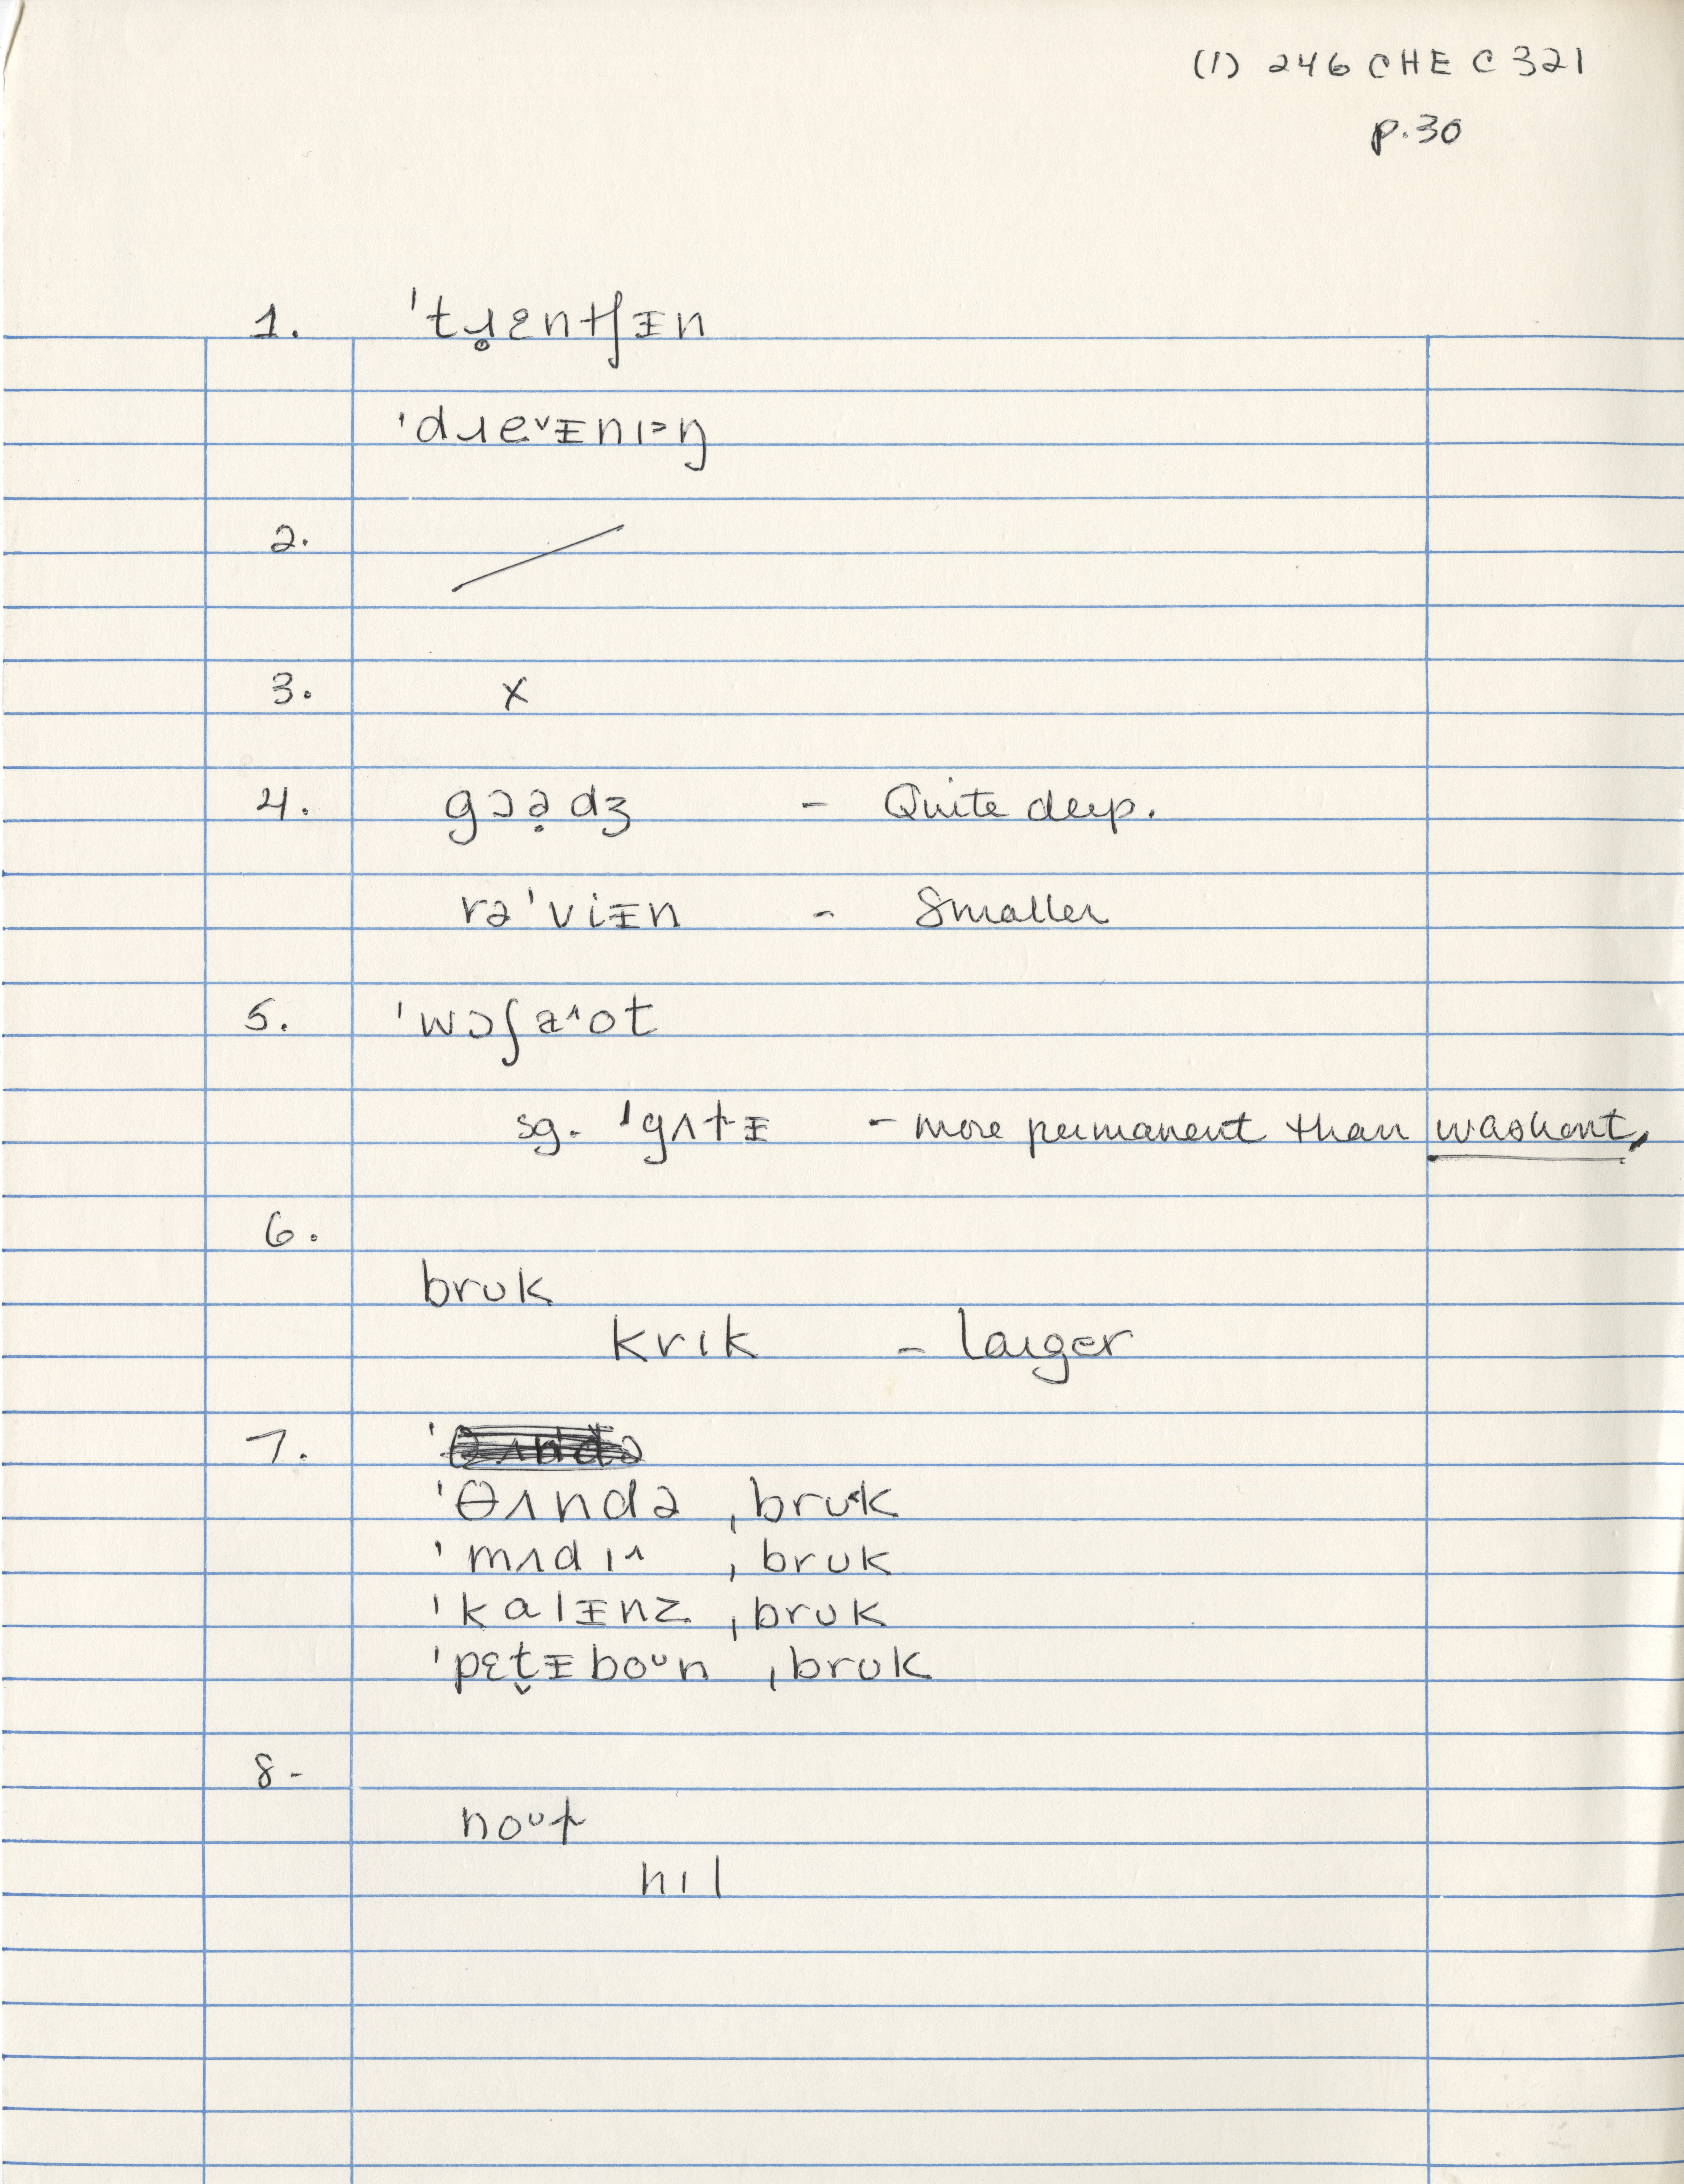 (1) 246 CHE C 321
p.30
1. 'tɹ̥ɛntʃᵻn
'dɹeᵛᵻnɪ˃ŋ
2. /
3. x
4. gɔə̣dʒ - Quite deep.
rə'viᵻn - Smaller
5. 'wɔʃa˄ot
sg. 'gʌtᵻ - more permanent than washout,
6.
bruk
krɪk - larger
7.
'θʌndə ˌbruk
'mʌdɪ˄ ˌbruk
'kalᵻnz ˌbruk
'pɛt̬ᵻboᵘn ˌbruk
8-
noᵘt
hɪl